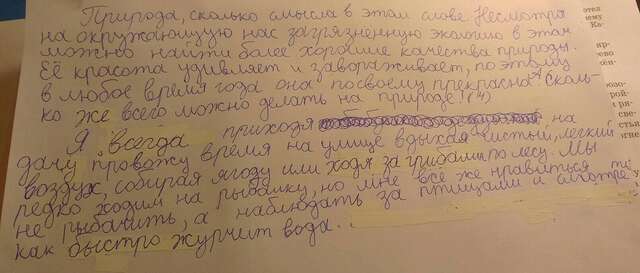 Природа, сколько смысла в этом слове. Несмотря
на окружающую нас загрязненную экалогию в этом
можно найти более хорошие качества природы.
Её красота удивляет и завораживает, поэтому
в любое время года она посвоему прекрасна. А сколь-
ко же всего можно делать на природе! (4)
Я всегда приходя на
дачу провожу время на улице вдыхая чистый, легкий
воздух, собирая ягоду или ходя за грибами по лесу. Мы
редко ходим на рыбалку, но мне все же нравиться
не рыбачить, а наблюдать за птицами и смотре
как быстро журчит вода.